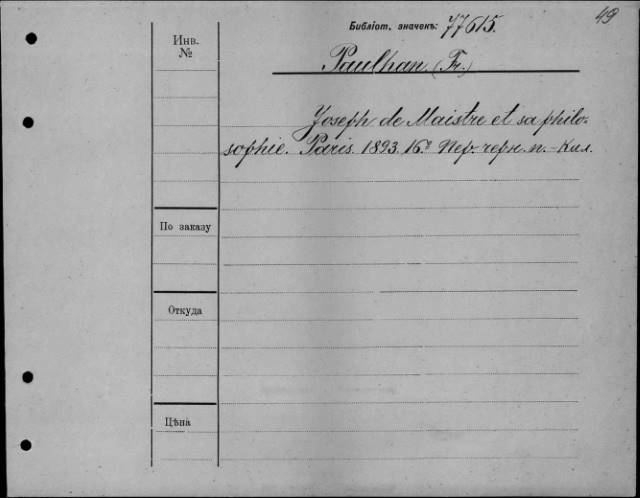 49
Библіот. значекъ: 77615.
Инв. №
Paulhan (Fr.)
Joseph de Maistre et sa philo-
sophie. Paris. 1893. 16º Пер. черн. п.-Кил.
По заказу
Откуда
Цѣна